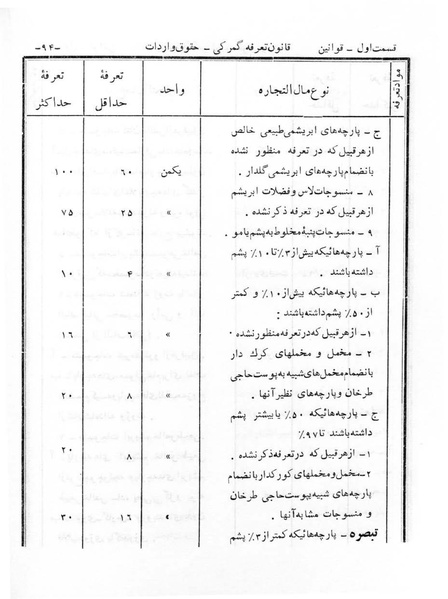 قسمت اول - قوانین    قانون تعرفه گمرکی - حقوق واردات    -۹۴-
مواد تعرفه    نوع مال التجاره    واحد    تعرفهٔ حداقل    تعرفهٔ حداکثر
ج - پارچه‌های ابریشمی طبیعی خالص
از هر قبیل که در تعرفه منظور نشده
بانضمام پارچه‌های ابریشمی گلدار.    یکمن    ۶۰    ۱۰۰
۸ - منسوجات لاس و فضلات ابریشم
از هر قبیل که در تعرفه ذکر نشده.    »    ۲۵    ۷۵
۹ - منسوجات پنبهٔ مخلوط به پشم یا مو.
آ - پارچه‌هائیکه بیش از ۳٪ تا ۱۰٪ پشم
داشته باشند.    »    ۴    ۱۰
ب - پارچه‌هائیکه بیش از ۱۰٪ و کمتر
از ۵۰٪ پشم داشته باشند:
۱- از هر قبیل که در تعرفه منظور نشده.    »    ۶    ۱۶
۲ - مخمل و مخملهای کرک دار
بانضمام مخمل‌های شبیه به پوست حاجی
طرخان و پارچه‌های نظیر آنها.    »    ۸    ۲۰
ج - پارچه‌هائیکه ۵۰٪ یا بیشتر پشم
داشته باشند تا ۹۷٪
۱- از هر قبیل که در تعرفه ذکر نشده.    »    ۸    ۲۰
۲- مخمل و مخملهای کورکدار بانضمام
پارچه‌های شبیه بپوست حاجی طرخان
و منسوجات مشابه آنها.    »    ۱۶    ۳۰
تبصره - پارچه‌هائیکه کمتر از ۳٪ پشم